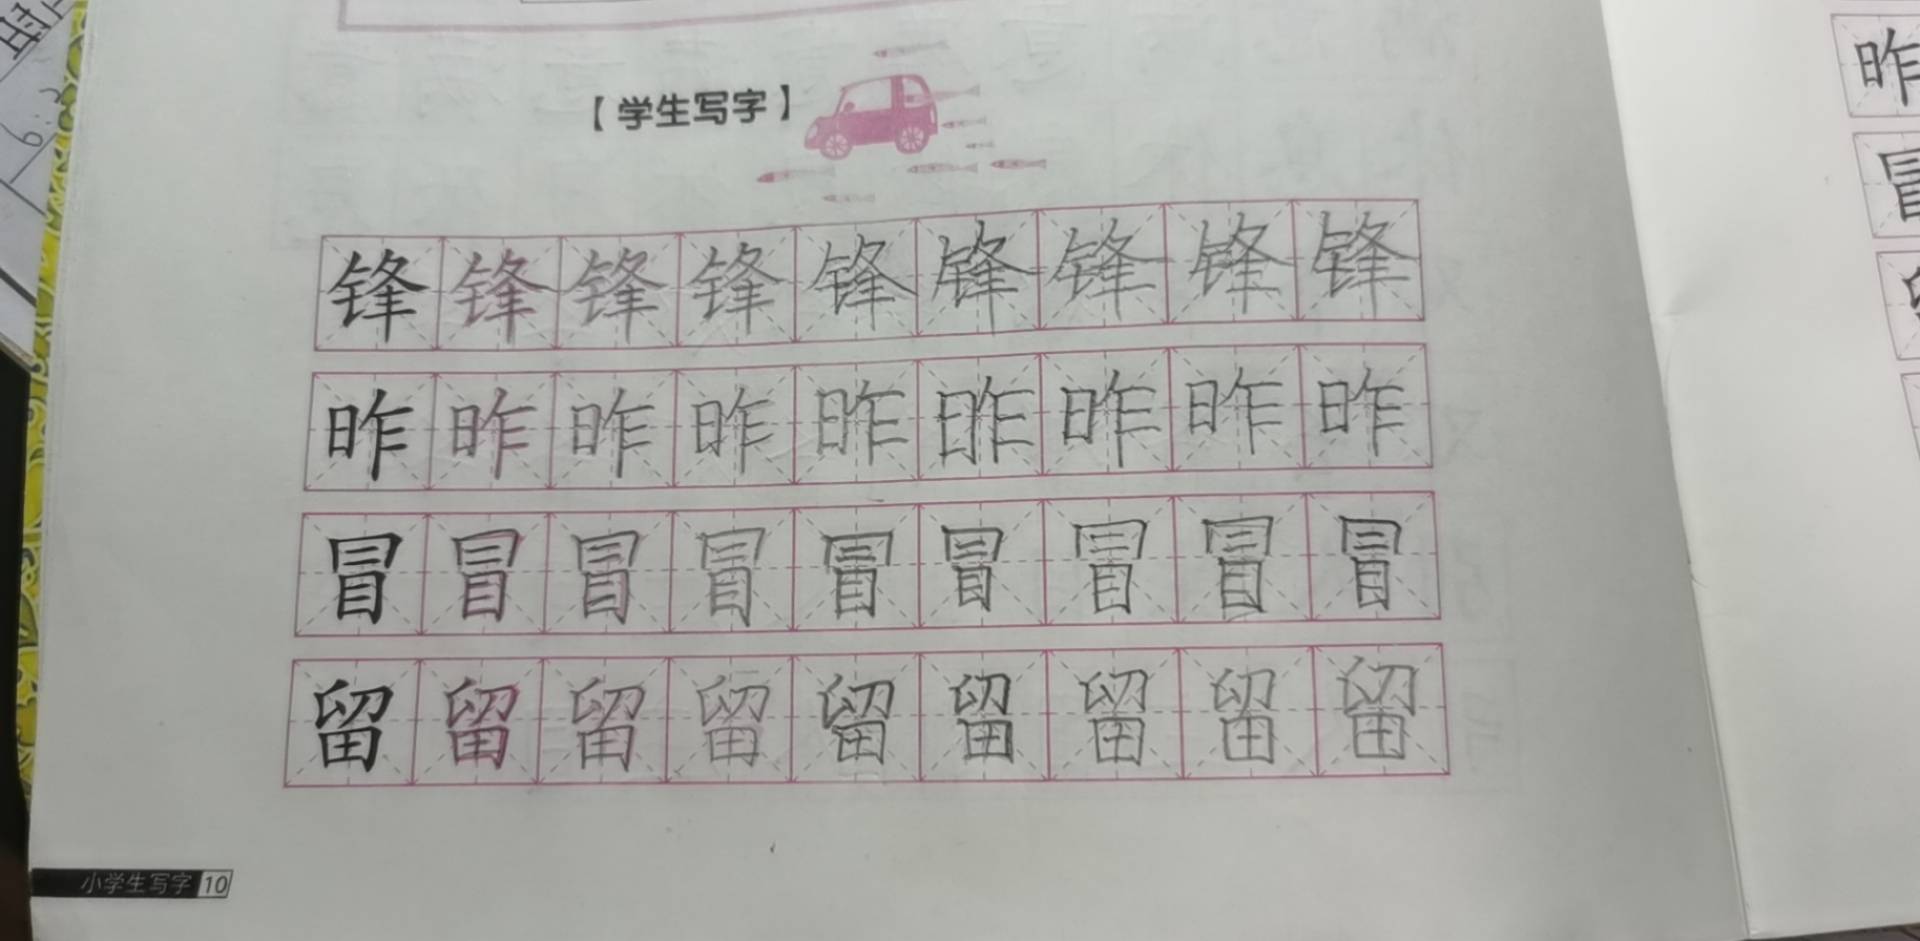 【学生写字】
锋锋锋锋锋锋锋锋锋
昨昨昨昨昨昨昨昨昨
冒冒冒冒冒冒冒冒冒
留留留留留留留留留
小学生写字 10
昨
冒